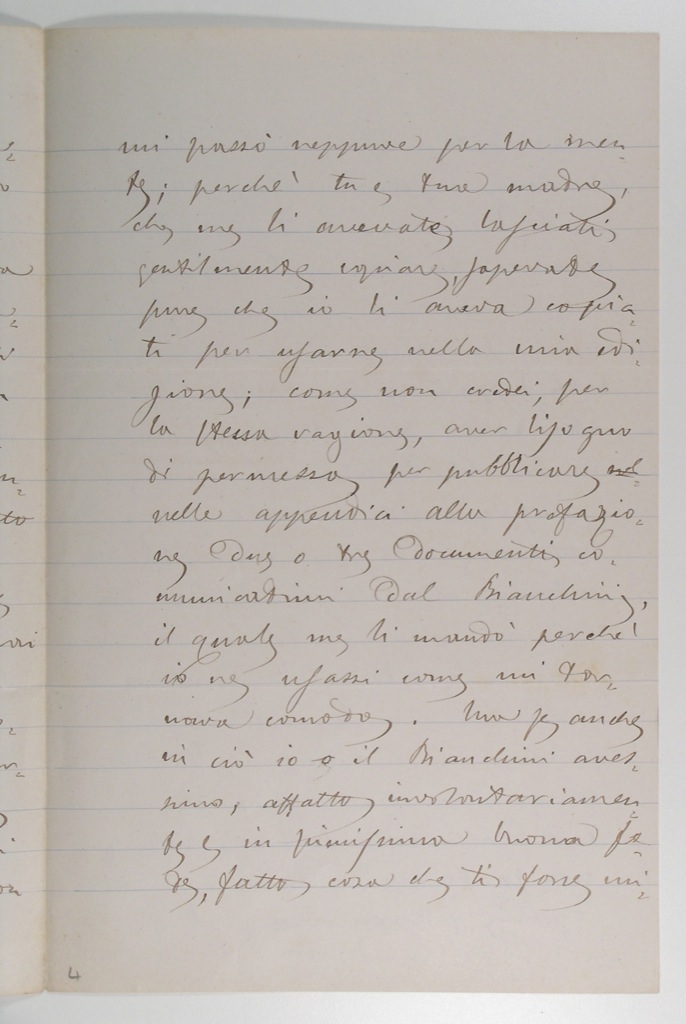 mi passò neppure per la men-
te; perchè tu e tua madre,
che me li avevate lasciati
gentilmente copiare, sapevate
pure che io li aveva copia-
ti per usarne nella mia edi-
zione; come non credei, per
la stessa ragione, aver bisogno
di permesso per pubblicare nel
nelle appendici alla prefazio-
ne due o tre documenti co-
municatimi dal Bianchini,
il quale me li mandò perchè
io ne usassi come mi tor-
nava comodo. Ma se anche
in ciò io o il Bianchini aves-
simo, affatto involontariamen-
te e in purissima buona fe-
de, fatto cosa che ti fosse in-
4